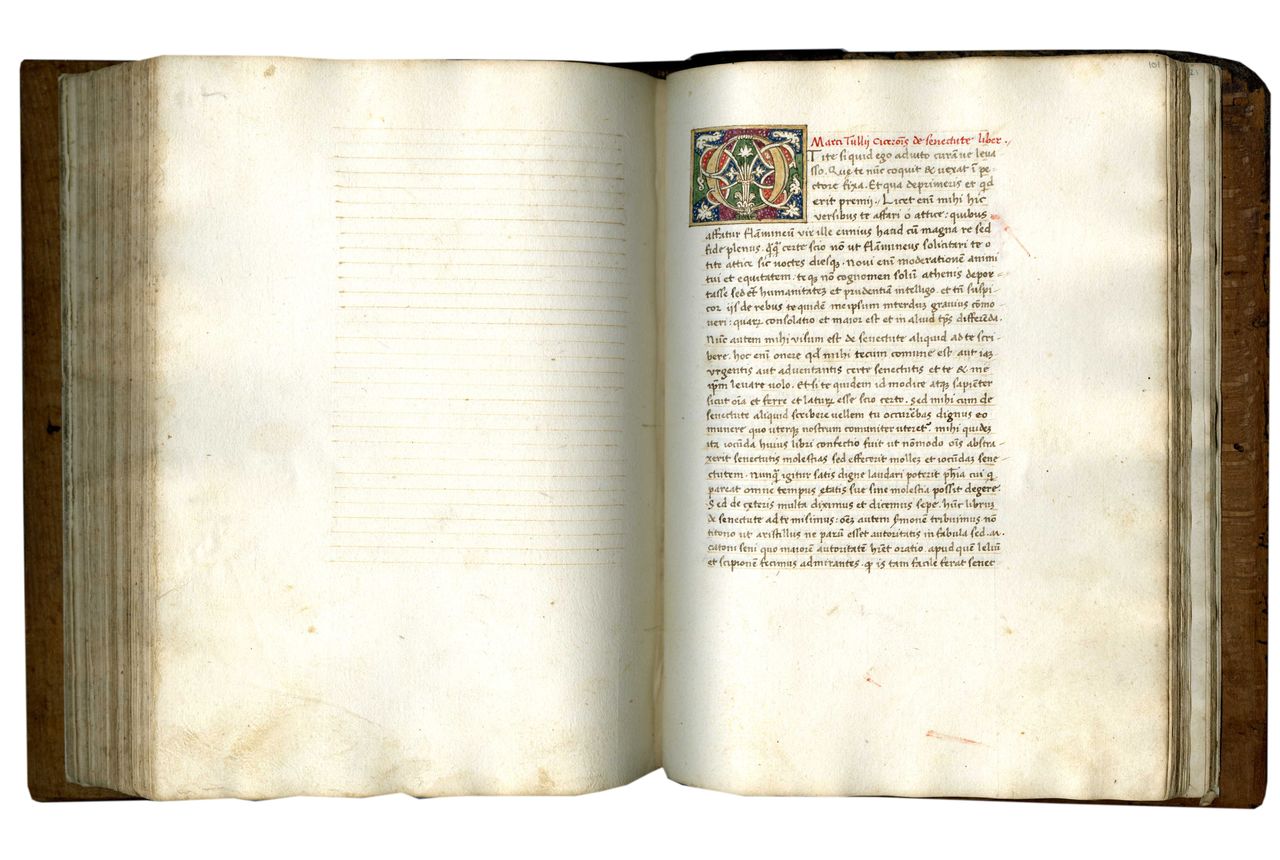 101
21
Marci Tullij Ciceroīs de senectute liber.
O Tite si quid ego adiuto curāue leua
sso. Que te nūc coquit & uexat ī pe-
ctore fixa. Et qua deprimeris et qd
erit premij. Licet enī mihi hic
versibus te affari o attice: quibus
affatur flāmineū vir ille ennius haud cū magna re sed
fide plenus. certe scio nō ut flāmineus solicitari te o
tite attice sic noctes diesq. Noui enī moderationē animi
tui et equitatem. teq nō cognomen solū athenis depor-
tasse sed et humanitatez et prudentiā intelligo. et tn̄ suspi-
cor ijs de rebus te quidē meipsum interduz grauius cōmo-
ueri: quarꝝ consolatio et maior est et in aliud tp̄s differēda.
Nūc autem mihi visum est de senectute aliquid ad te scri-
bere. hoc enī onere qd mihi tecum comune est aut iaꝫ
vrgentis aut aduentantis certe senectutis et te & me
ip̄m leuare uolo. Et si te quidem id modice atqꝫ sapiēter
sicut oīa et ferre et laturꝝ esse scio certo. Sed mihi cum de
senectute aliquid scribere vellem tu occurrebas dignus eo
munere quo uterqꝫ nostrum comuniter uteret. mihi quidez
ita iocūda huius libri confectio fuit ut nōmodo oīs abstra-
xerit senectutis molestias sed effecerit mollez et iocūdaz sene-
ctutem. Nunꝗ igitur satis digne laudari poterit ph̄ia cui q
pareat omne tempus etatis sue sine molestia possit degere.
Sed de ceteris multa diximus et dicemus sepe. hūc librum
de senectute ad te misimus: oēz autem sermonē tribuimus nō
titono ut aristillus ne parū esset autoritatis in fabula sed .m.
catoni seni quo maiorē autoritatē hret oratio. apud quē leliū
et scipionē fecimus admirantes. ꝙ is tam facile ferat senec